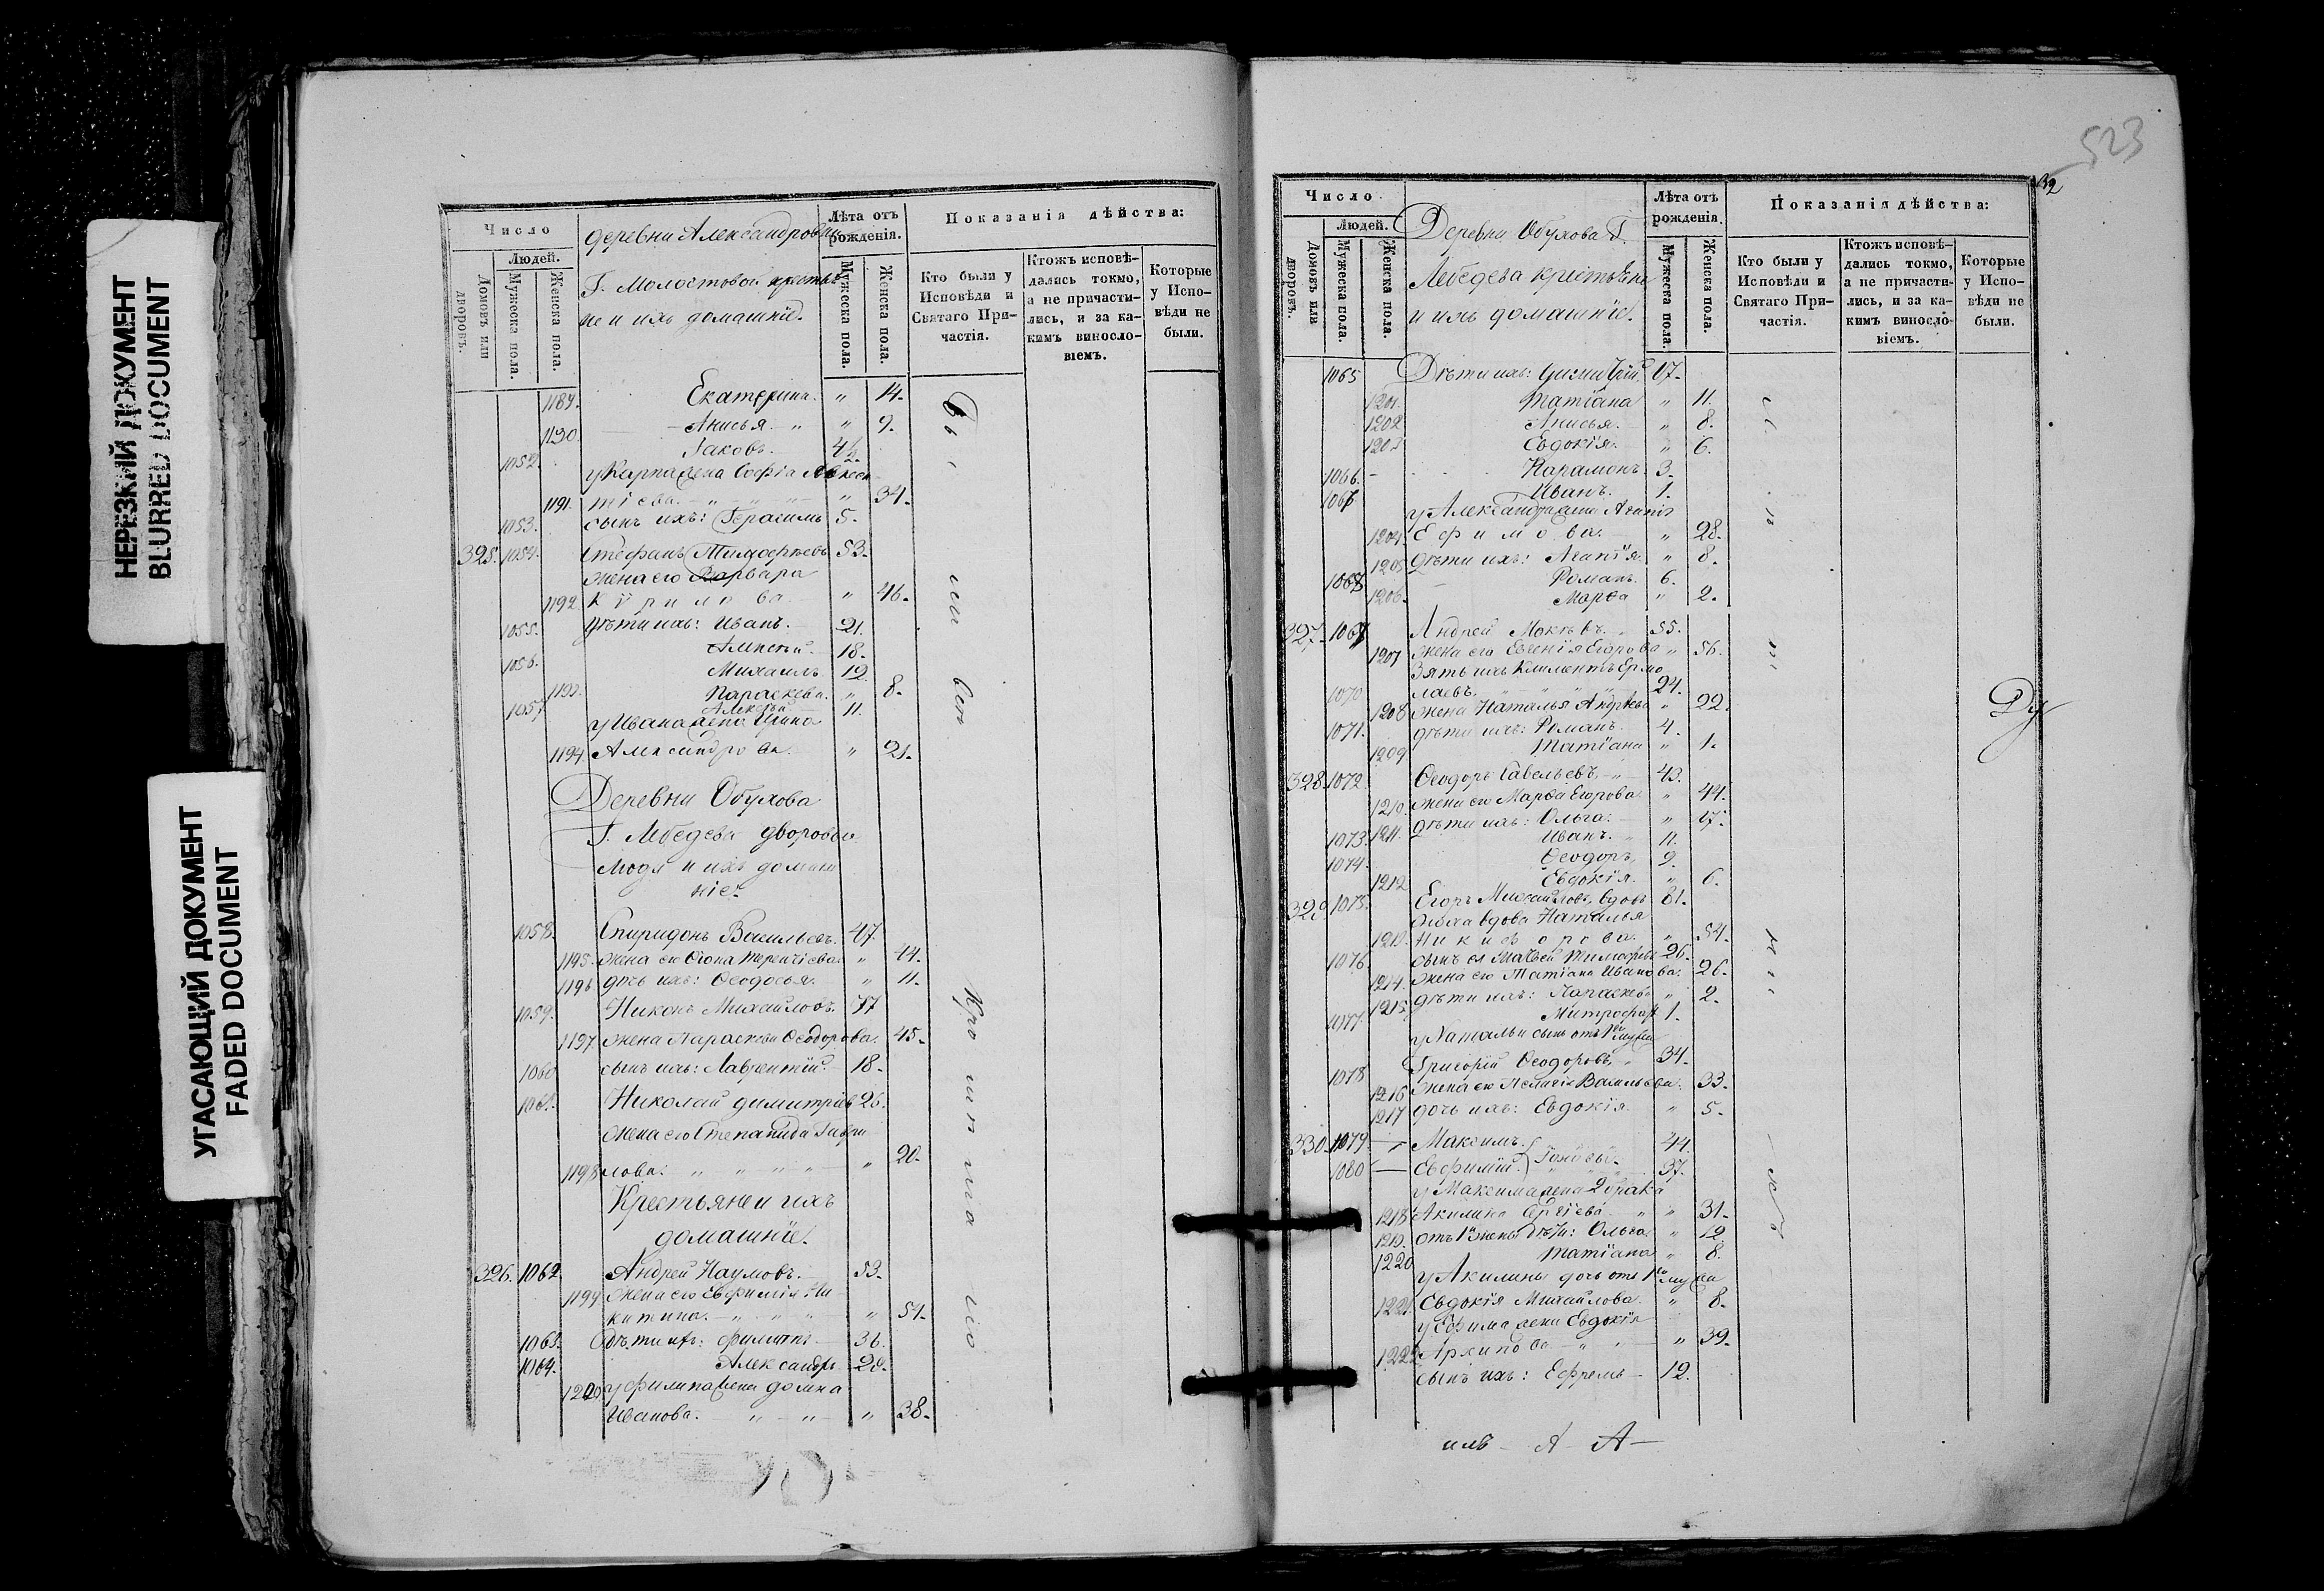 НЕРЕЗКИЙ ДОКУМЕНТ
BLURRED DOCUMENT
УГАСАЮЩИЙ ДОКУМЕНТ
FADED DOCUMENT
Число
Людей.
Домовъ или дворовъ.
Мужеска пола.
Женска пола.
деревни Александровки
Г. Молостовой крестья
не и ихъ домашніе.
Лѣта отъ рожденія.
Мужеска пола.
Женска пола.
Показанія дѣйства:
Кто были у Исповѣди и Святаго Причастія.
Ктожъ исповѣдались токмо, а не причастились, и за какимъ винословіемъ.
Которые у Исповѣди не были.
1189. Екатерина. " 14.
1190. Анисья. " " 9.
1052. Іаковъ. 4½
у Карпа жена Софія
1191. " 34.
1053. сынъ ихъ: Герасимъ 5.
325. 1054. Стефанъ Тимофеевъ 53.
жена его Варвара
1192 Кѵрилова " 46.
1055. дѣти ихъ: Иванъ. 21.
1056. Алексѣй 18.
Михаилъ 12
1193. Параскева. " 8.
1057 Алексѣй 11.
у Ивана жена Ирина
1194 Александрова. " 21.
Деревни Обухова
Г. Лебедева дворовые
люди и ихъ домаш
ніе.
1058. Спиридонъ Васильевъ. 47.
1195. жена его Ѳіона Терентіева " 44.
1196 дочь ихъ: Ѳеодосья. " 11.
1059. Никонъ Михайловъ. 47
1197 жена Параскева Ѳеодорова. 45.
1060 сынъ ихъ: Лаврентій. 18.
1061. Николай Димитріев 26.
жена его Степанида Гаври
1198 лова: " " " " 20.
Крестьяне и ихъ
домашніе.
326. 1062. Андрей Наумовъ. 53.
1199 жена его Евфимія Ни
китина. " 54.
1063. дѣти ихъ: Филиппъ 36.
1064. Александръ 28.
1200 у Филипа жена Домна
Иванова. " " " 38.
523
32
Число
Людей.
Домовъ или дворовъ.
Мужеска пола.
Женска пола.
Деревни Обухова Г.
Лебедева крестьяне
и ихъ домашніе.
Лѣта отъ рожденія.
Мужеска пола.
Женска пола.
Показанія дѣйства:
Кто были у Исповѣди и Святаго Причастія.
Ктожъ исповѣдались токмо, а не причастились, и за какимъ винословіемъ.
Которые у Исповѣди не были.
1065 Дѣти ихъ: 17.
1201. Татіана " 11.
1202 Анисья. " 8.
1203 Евдокія. " 6.
1066. Парамонъ. 3.
1067 Иванъ. 1.
у Александра жена
1204 Ефимова. " 28.
1205 дѣти ихъ: Агапія. " 8.
1068 Романъ. 6.
1206. Марѳа " 2.
327. 1069 Андрей Мокѣевъ. 55.
1207 жена его Евгенія Егорова " 56.
Зять ихъ Климентъ Ермо
1070 лаевъ. 24.
1208 жена Наталья Андреева " 22.
1071. дѣти ихъ: Романъ. 4.
1209 Татіана " 1.
328. 1072 Ѳеодоръ Савельевъ 43.
1210. жена его Марѳа Егорова. " 44.
1211. дѣти ихъ: Ольга. " 17.
1073. Иванъ. 11.
1074. Ѳеодоръ. 9.
1212 Евдокія. " 6.
329. 1075. Егоръ Михайловъ, вдовъ 61.
Сноха вдова Наталья
1213. Никифорова. " 54.
1076. сынъ ея Матвей Тимофеев 26.
1214. жена его Татіана Иванова. 26.
1215. дѣти ихъ: Параскева " 2.
1077. Митрофан 1.
у Натальи сынъ отъ 1го мужа
1078 Григорій Ѳеодоровъ. 34.
1216 жена его Васильева. 33.
1217 дочь ихъ: Евдокія. " 5.
330. 1079. Максимъ. 44.
1080 Евфимій. 37.
у Максима жена 2 брака
1218 Акилина Сергіева " " 31.
1219. отъ 1й жены дѣти: Ольга " 12
1220 Татіана " 8.
у Акилины дочь отъ 1го мужа
1221. Евдокія Михайлова. " 8.
у Ефима жена Евдокія
1222 Архипова " 39.
сынъ ихъ: Ефремъ 12.